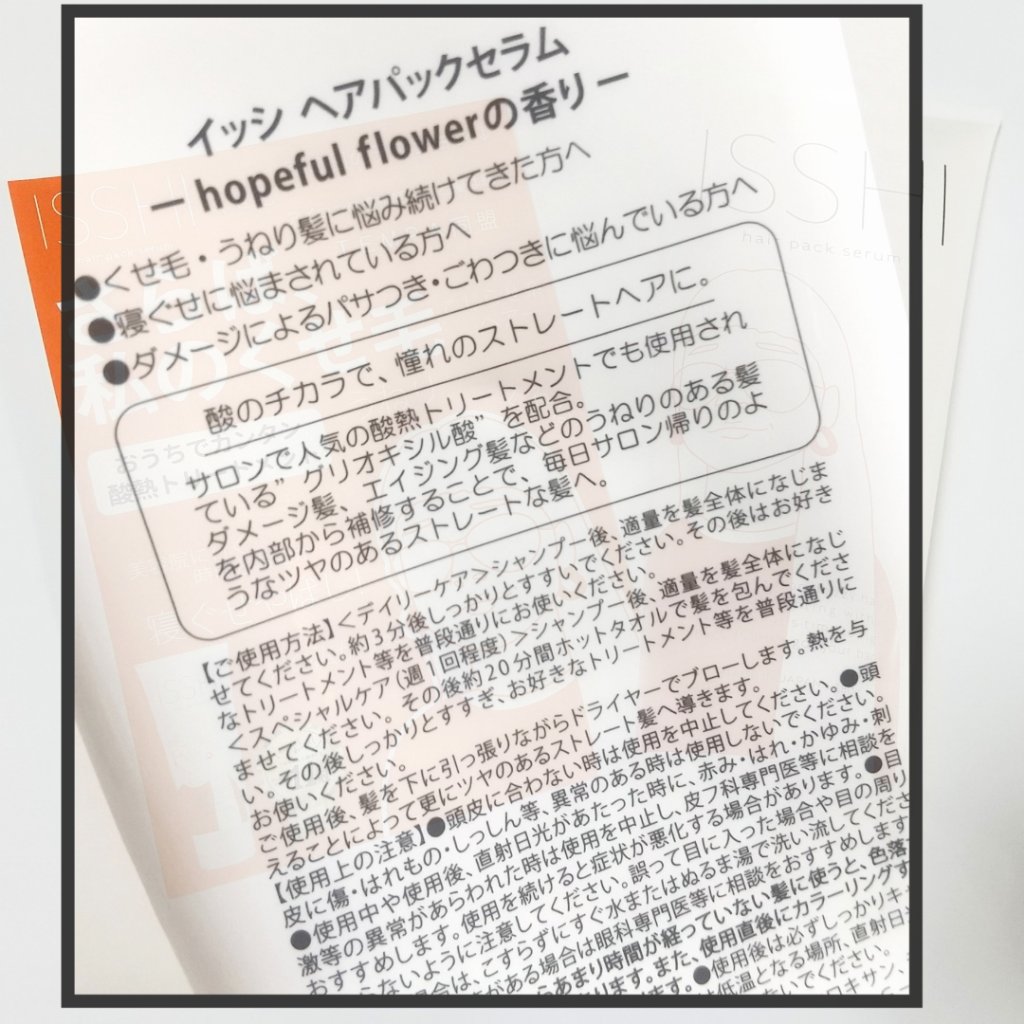 イッシ ヘアパックセラム
ー hopeful flowerの香り ー
●くせ毛・うねり髪に悩み続けてきた方へ
●寝ぐせに悩まされている方へ
●ダメージによるパサつき・ごわつきに悩んでいる方へ
酸のチカラで、憧れのストレートヘアに。
サロンで人気の酸熱トリートメントでも使用され
ている"グリオキシル酸"を配合。
ダメージ髪、エイジング髪などのうねりのある髪
を内部から補修することで、毎日サロン帰りのよ
うなツヤのあるストレートな髪へ。
【ご使用方法】<デイリーケア>シャンプー後、適量を髪全体になじま
せてください。約3分後しっかりとすすいでください。その後はお好き
なトリートメント等を普段通りにお使いください。
<スペシャルケア(週1回程度)>シャンプー後、適量を髪全体になじ
ませてください。その後約20分間ホットタオルで髪を包んでくださ
い。その後しっかりとすすぎ、お好きなトリートメント等を普段通りに
お使いください。
ご使用後、髪を下に引っ張りながらドライヤーでブローします。熱を与
えることによって更にツヤのあるストレート髪へ導きます。
【使用上の注意】●頭皮に合わない時は使用を中止してください。●頭
皮に傷・はれもの・しっしん等、異常のある時は使用しないでください。
●使用中や使用後、直射日光があたった時に、赤み・はれ・かゆみ・刺
激等の異常があらわれた時は使用を中止し、皮フ科専門医等に相談を
おすすめします。使用を続けると症状が悪化する場合があります。●目
らないように注意してください。誤って目に入った場合や目の周り
合は、こすらずにすぐ水またはぬるま湯で洗い流してくださ
がある場合は眼科専門医等に相談をおすすめします
らあまり時間が経っていない髪に使うと、色落
ります。また、使用直後にカラーリングす
ます。●使用後は必ずしっかりキ
低温となる場所、直射日
ないでください。
ISSHI
hair pack serum
さらば、
私のくせ毛
おうちでカンタン
ISSHI
hair pack serum